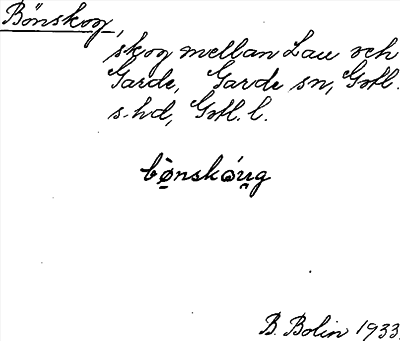 Bönskog,
skog mellan Lau och
Garde, Garde sn, Gotl.
s. hd, Gotl. l.
bö̀nskóug
B. Bolin 1933.